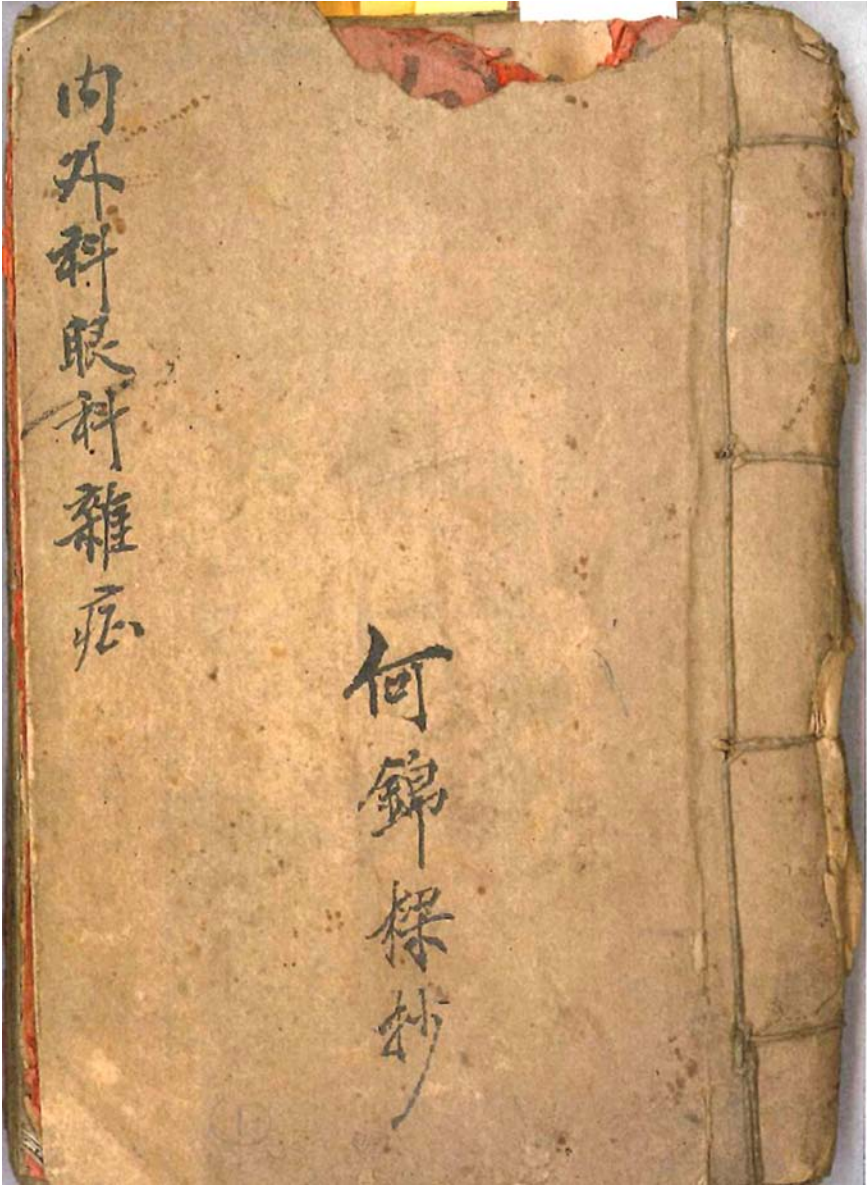 内外科眼科雜症
何錦樑抄